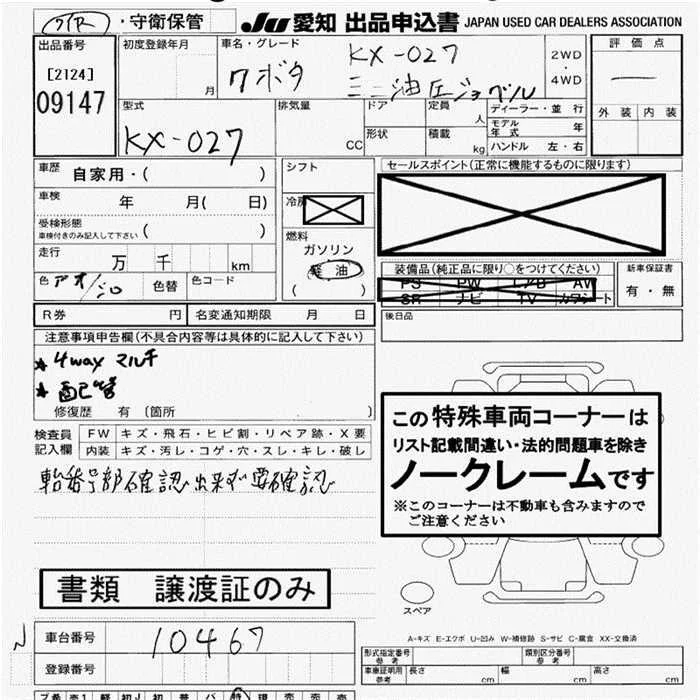 ・守衛保管 JU 愛知 出品申込書 JAPAN USED CAR DEALERS ASSOCIATION
出品番号 初度登録年月 月 車名・グレード
[2124]
09147
クボタ
KX-027
ミニ油圧ショベル
2WD
・
4WD
評価点
—
外装 内装
型式
KX-027
排気量 CC
ドア
形状
定員 人
積載 kg
ディーラー・並行
モデル年式 年
ハンドル 左・右
車歴 自家用・( )
車検 年 月( 日)
受検形態 ( )
車検付きのみ記入して下さい
走行 万 千 km
色 アオ/シロ 色替 色コード
シフト
冷房
燃料
ガソリン
軽油
( )
セールスポイント(正常に機能するものに限ります)
装備品(純正品に限り○をつけてください)
PS PW エアB AW
SR ナビ TV カワシート
新車保証書
有・無
R券 円 名変通知期限 月 日
後日品
注意事項申告欄(不具合内容等は具体的に記入して下さい)
★4way マルチ
★配管
修復歴 有 [箇所 ]
検査員記入欄
FW キズ・飛石・ヒビ割・リペア跡・X要
内装 キズ・汚レ・コゲ・穴・スレ・キレ・破レ
輪番号部確認出来ず要確認
この特殊車両コーナーは
リスト記載間違い・法的問題車を除き
ノークレームです
※このコーナーは不動車も含みますので
ご注意ください
書類 譲渡証のみ
スペア
A-キズ E-エクボ U-凹み W-補修跡 S-サビ C-腐食 XX-交換済
車台番号 10467
登録番号
型式指定番号
参考
類別区分番号
参考
車庫証明用
参考
長さ cm 幅 cm 高さ cm